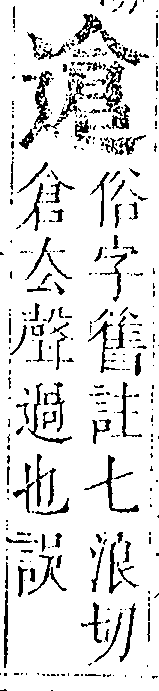 俗字舊註七浪切
倉厺聲過也誤